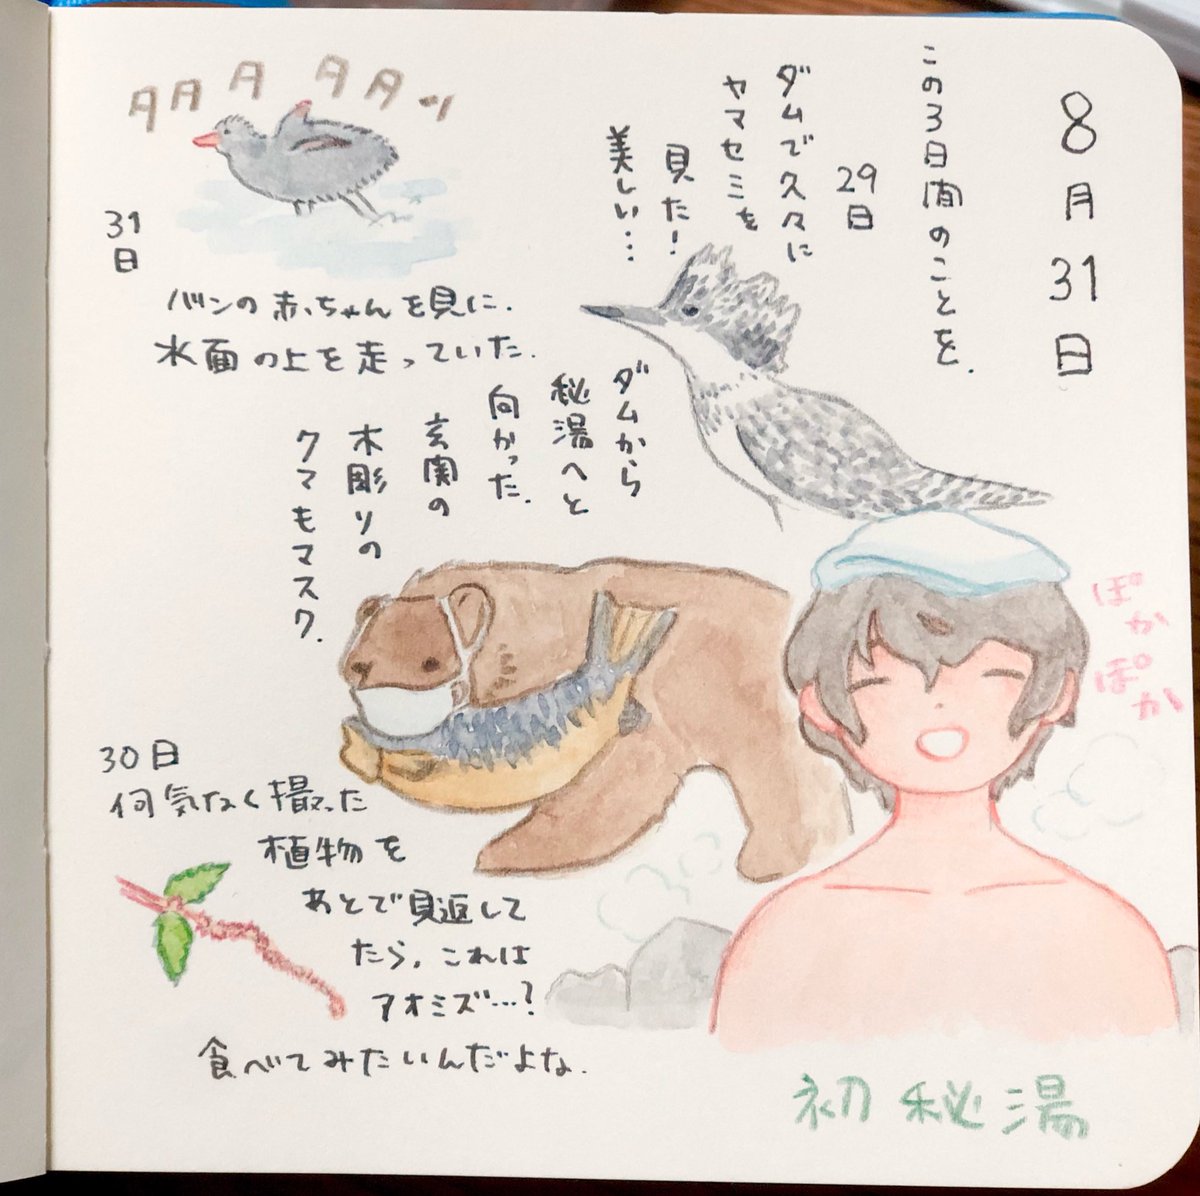 8月31日
この3日間のことを.
29日
ダムで久々に
ヤマセミを
見た!
美しい…
ダムから
秘湯へと
向かった.
玄関の
木彫りの
クマもマスク.
ぽかぽか
初秘湯
タタタタタッ
31日
バンの赤ちゃんを見に.
水面の上を走っていた.
30日
何気なく撮った
植物を
あとで見返して
たら,これは
アオミズ…?
食べてみたいんだよな.